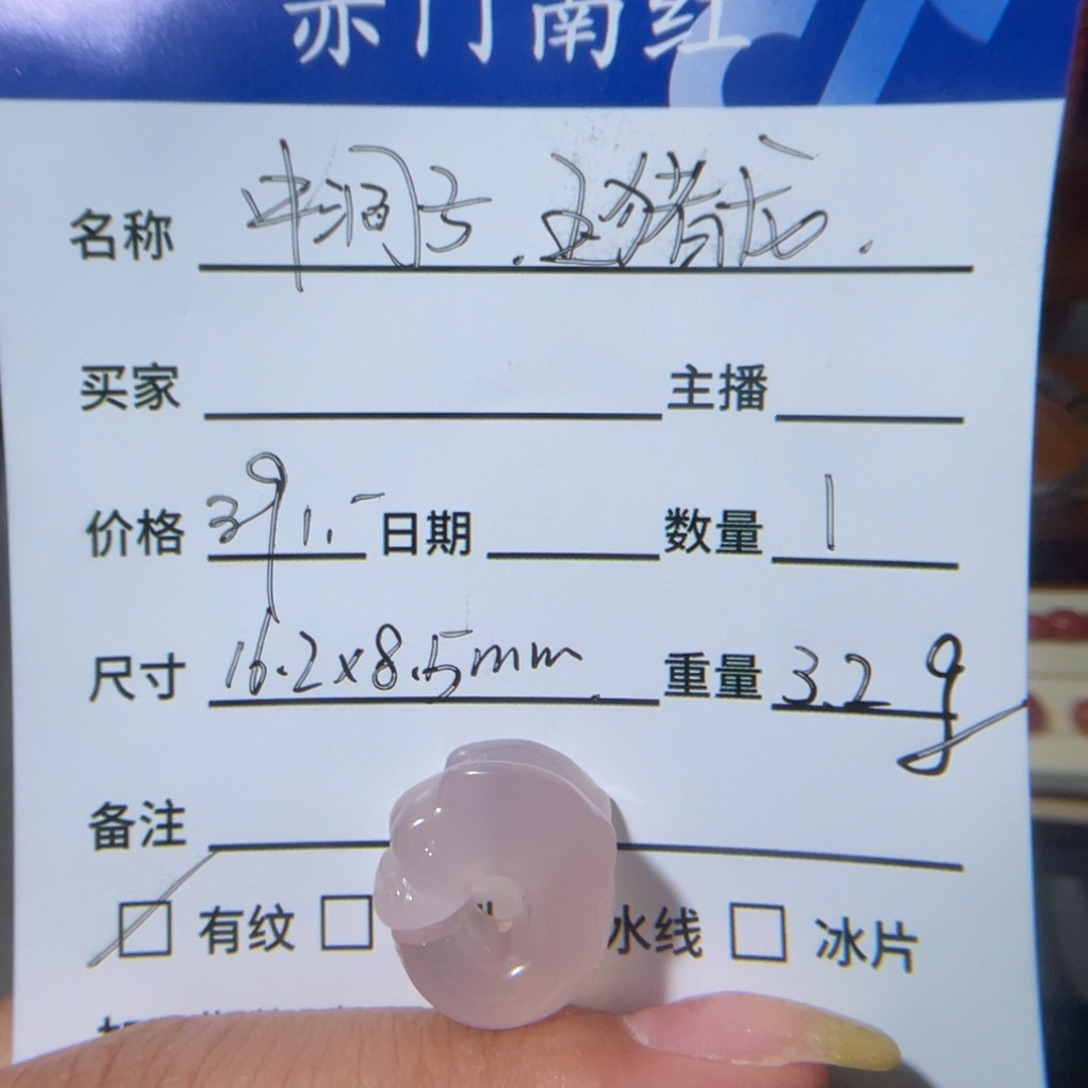 赤门南红
名称 中洞子.玉猪龙.
买家 主播
价格 391.- 日期 数量 1
尺寸 16.2x8.5mm 重量 3.2g
备注
有纹 水线 冰片